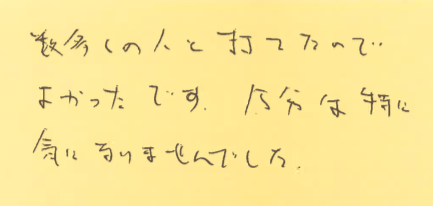 数多くの人と打てたので
よかったです. 分は特に
気になりませんでした.